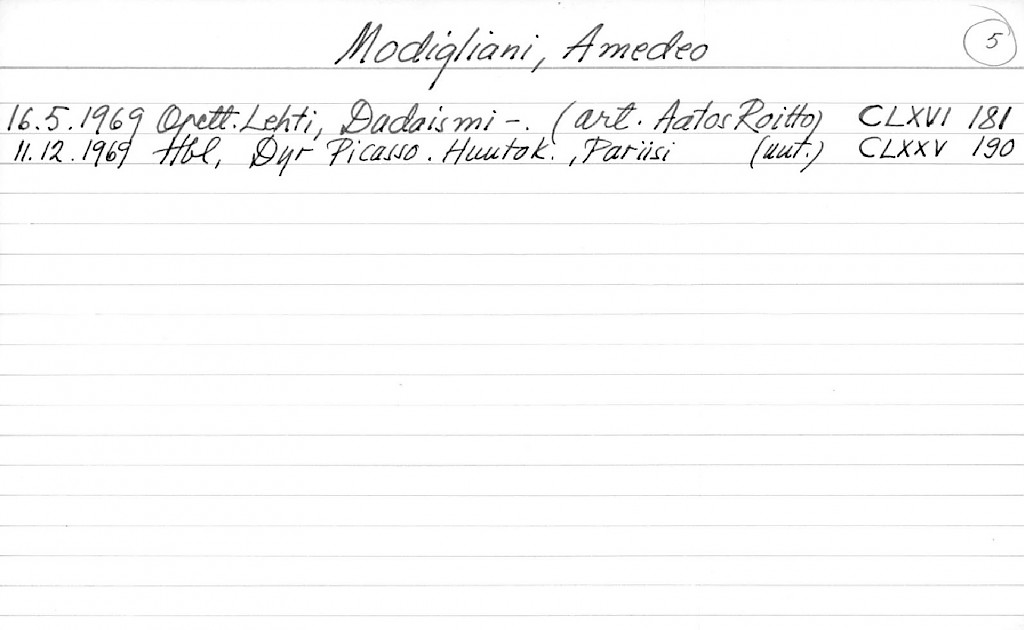 Modigliani, Amedeo 5
16.5.1969 Opett. Lehti, Dadaismi -. (art. Aatos Roitto) CLXVI 181
11.12.1969 Hbl, Dyr Picasso. Huutok., Pariisi (uut.) CLXXV 190